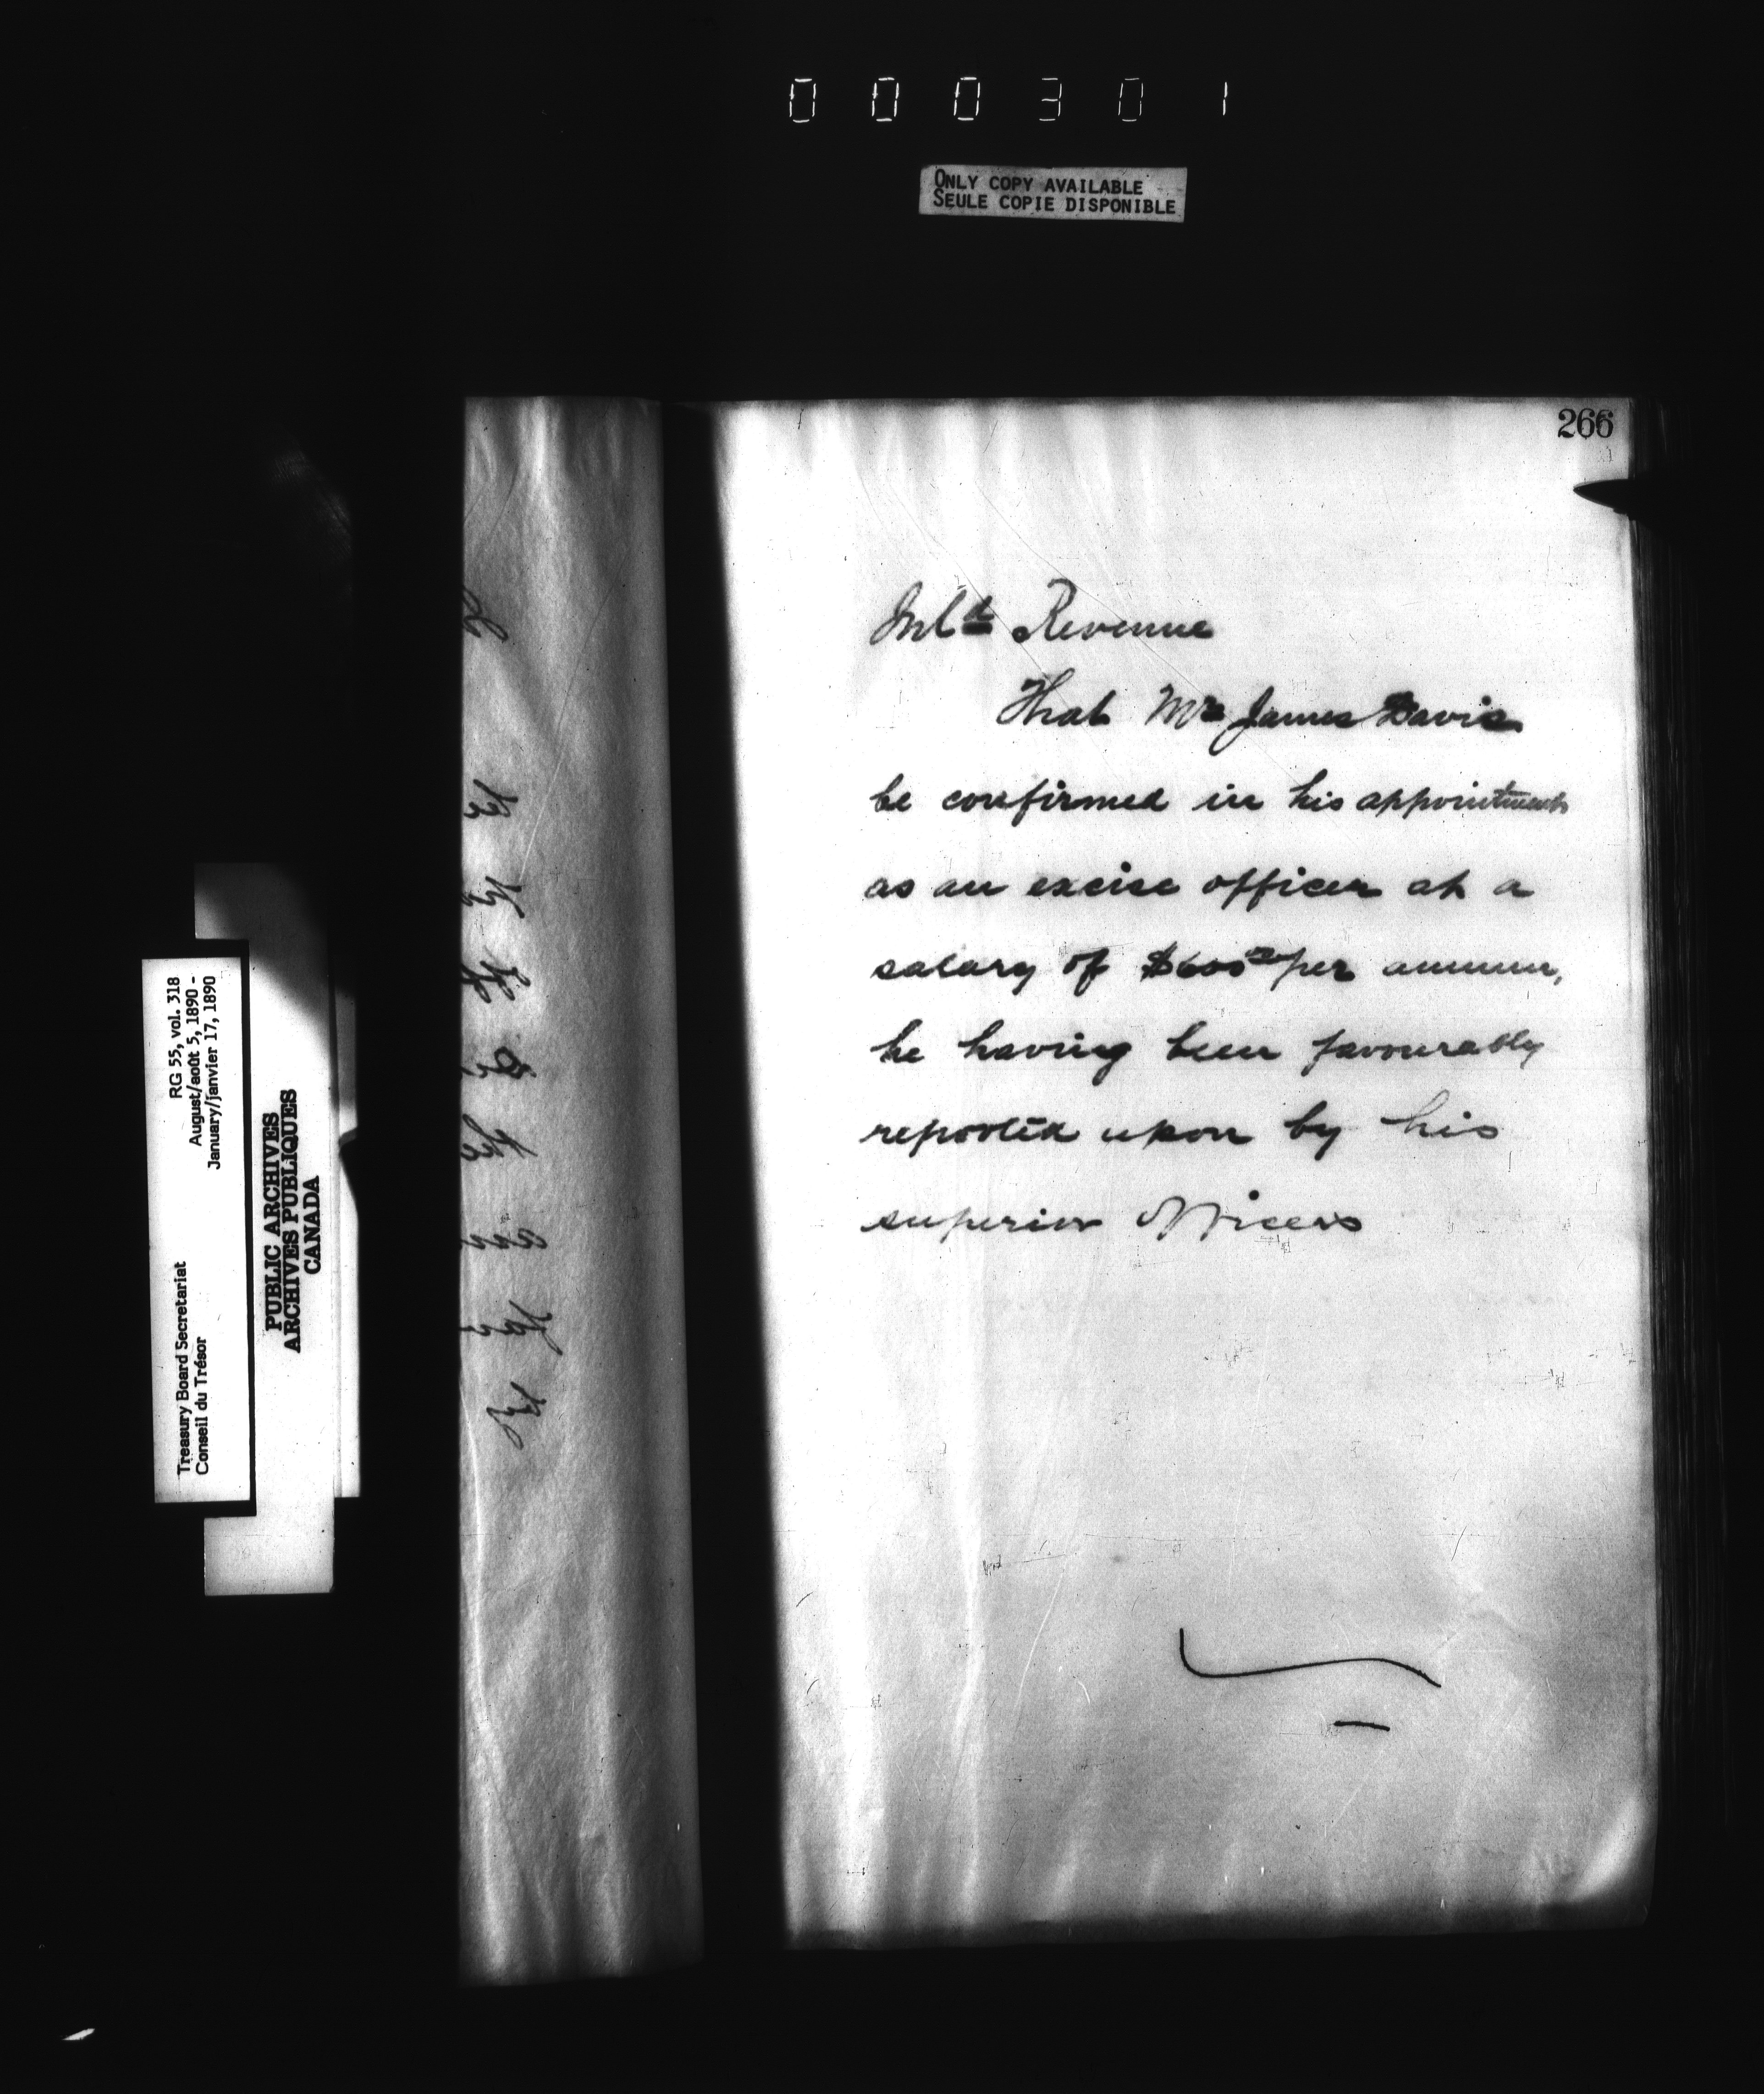 000301
ONLY COPY AVAILABLE
SEULE COPIE DISPONIBLE
266
Inl<sup>d</sup> Revenue
That Mr James Davis
be confirmed in his appointment
as an excise officer at a
salary of $600<sup>00</sup> per annum,
he having been favourably
reported upon by his
superior officers
Treasury Board Secretariat RG 55, vol. 318
Conseil du Trésor August/août 5, 1890 -
January/janvier 17, 1890
PUBLIC ARCHIVES
ARCHIVES PUBLIQUES
CANADA